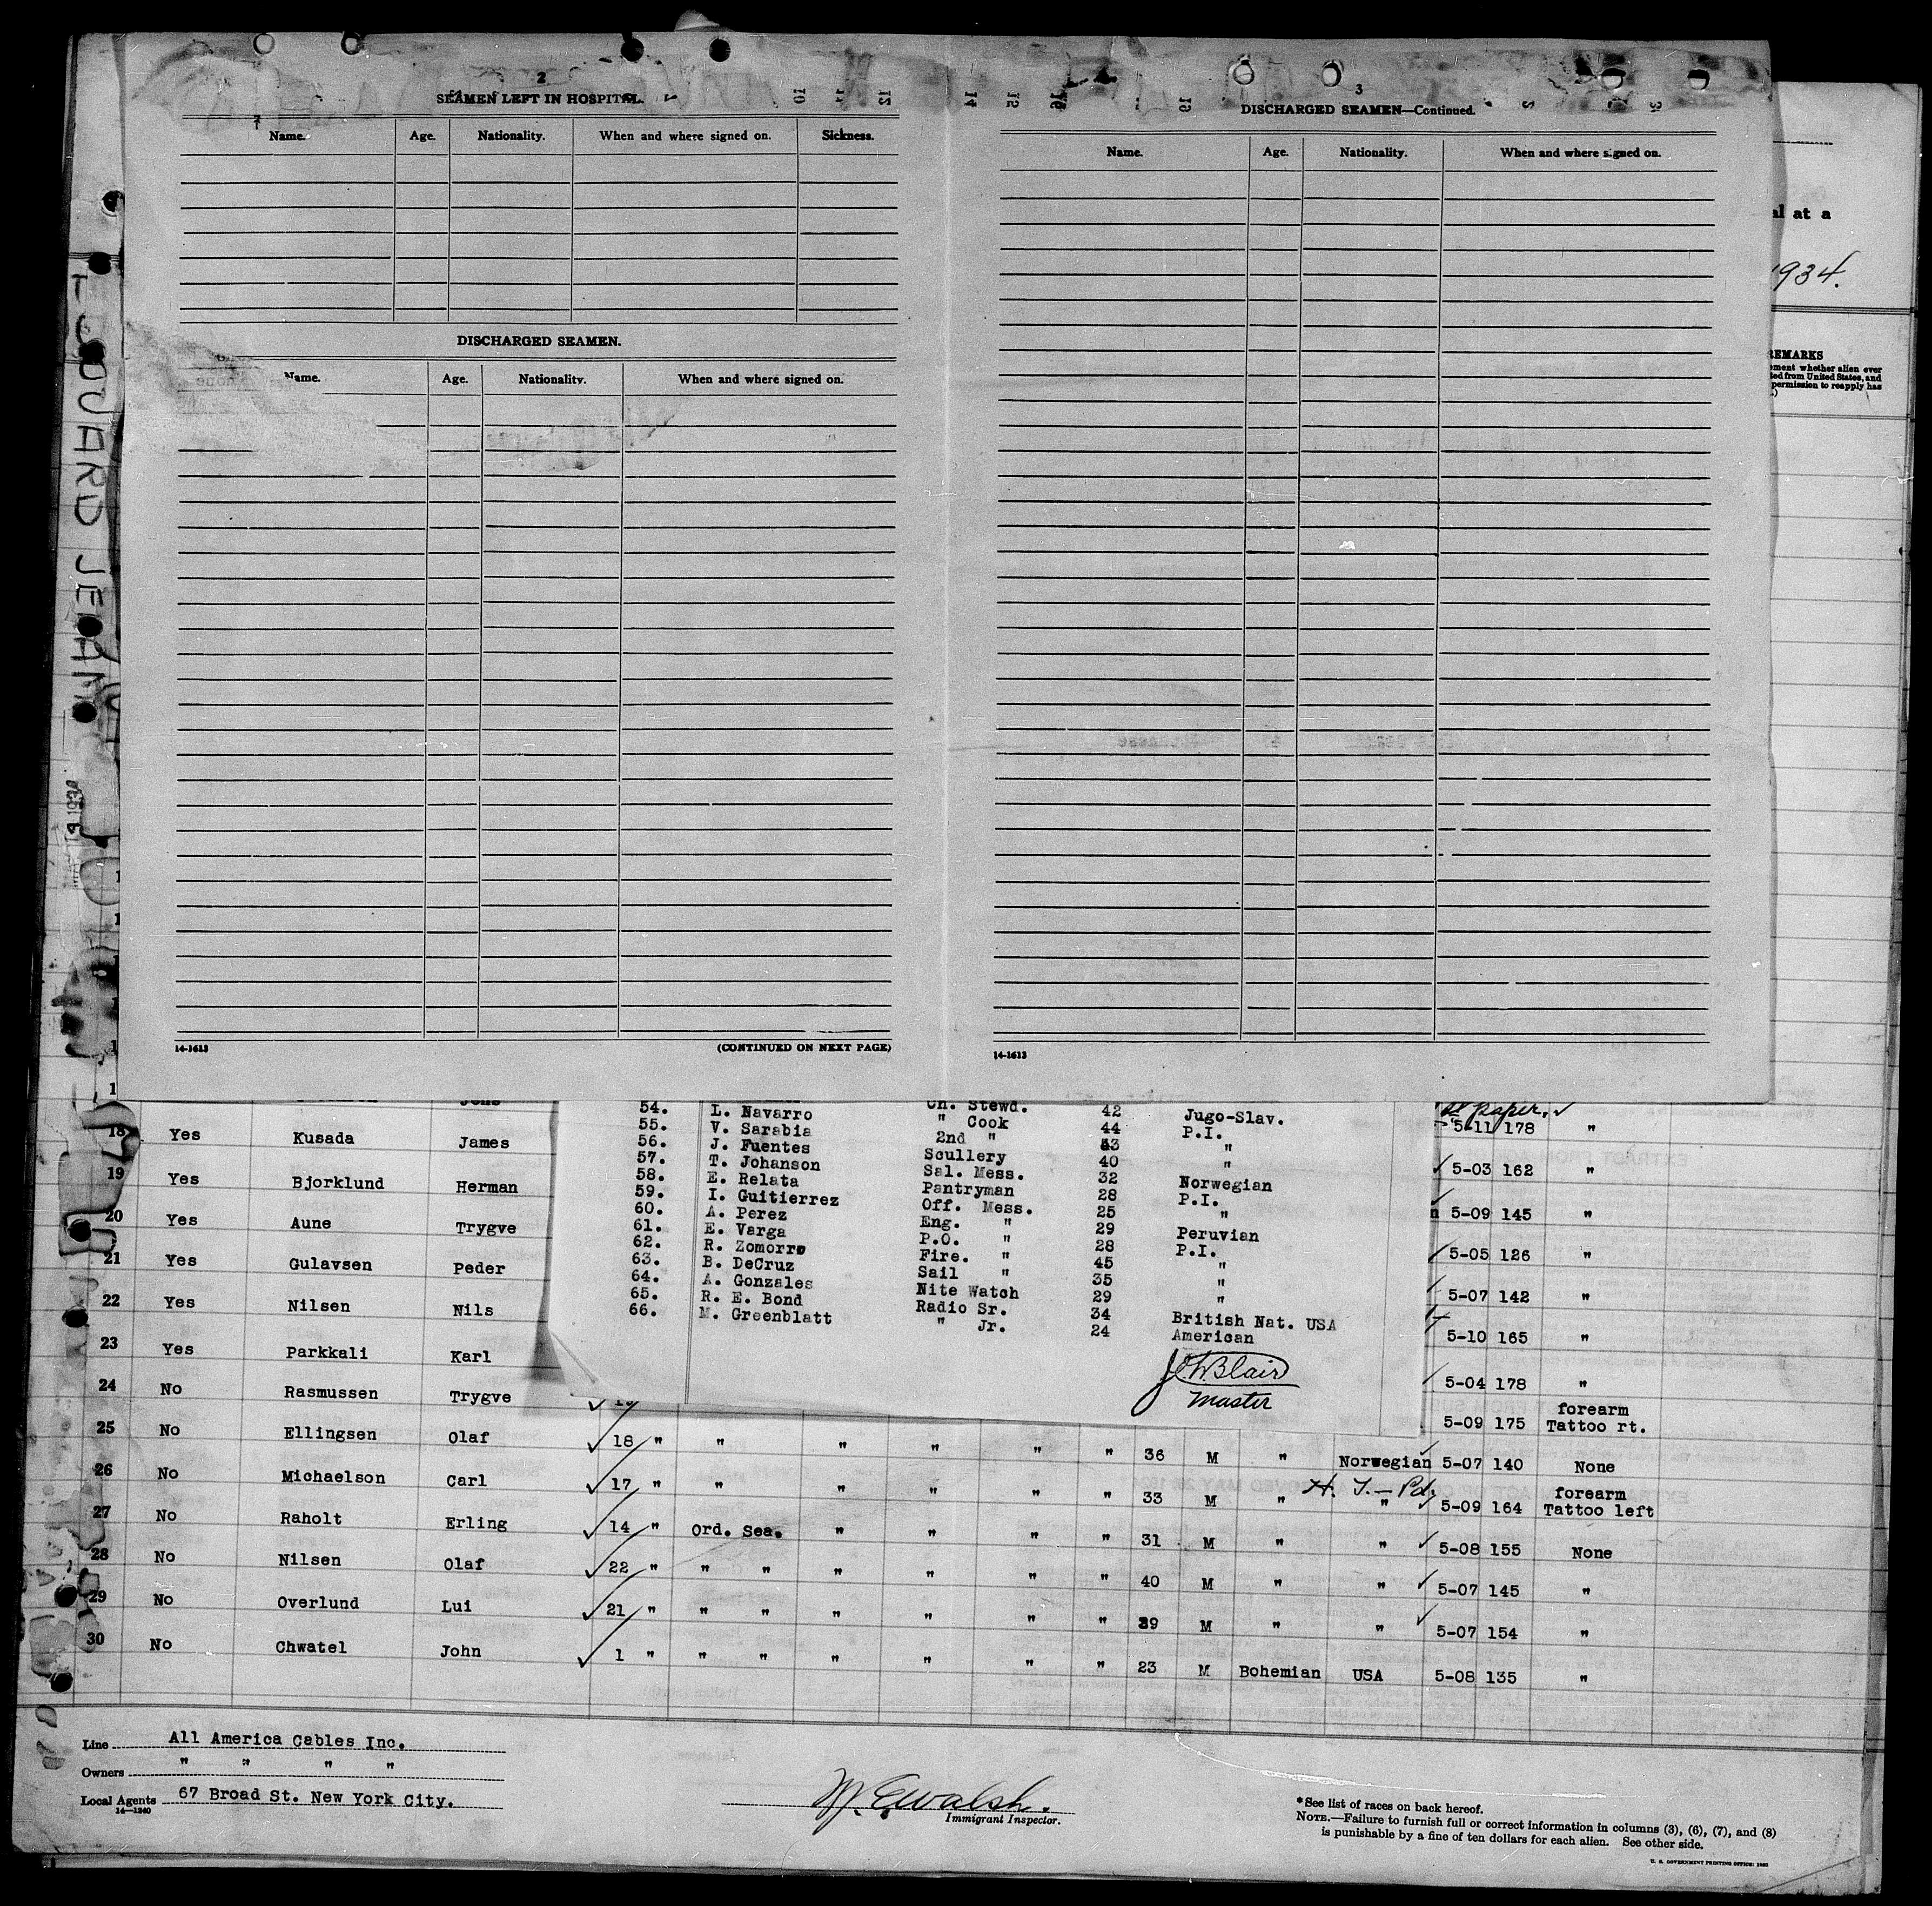 2
SEAMEN LEFT IN HOSPITAL.
Name. Age. Nationality. When and where signed on. Sickness.
DISCHARGED SEAMEN.
Name. Age. Nationality. When and where signed on.
14-1613
(CONTINUED ON NEXT PAGE)
3
DISCHARGED SEAMEN—Continued.
Name. Age. Nationality. When and where signed on.
14-1613
al at a
1934.
REMARKS
ement whether alien ever
ted from United States, and
permission to reapply has
54. L. Navarro Ch. Stewd. 42 Jugo-Slav.
55. V. Sarabia " Cook 44 P.I.
56. J. Fuentes 2nd " 43 "
57. T. Johanson Scullery 40 "
58. E. Relata Sal. Mess. 32 Norwegian
59. I. Guitierrez Pantryman 28 P.I.
60. A. Perez Off. Mess. 25 "
61. E. Varga Eng. " 29 Peruvian
62. R. Zomorro P.O. " 28 P.I.
63. B. DeCruz Fire. " 45 "
64. A. Gonzales Sail " 35 "
65. R. E. Bond Nite Watch 29 "
66. M. Greenblatt Radio Sr. 34 British Nat. USA
" Jr. 24 American
J.W Blair
Master
paper.
5-11 178 "
18 Yes Kusada James 5-03 162 "
19 Yes Bjorklund Herman 5-09 145 "
20 Yes Aune Trygve 5-05 126 "
21 Yes Gulavsen Peder 5-07 142 "
22 Yes Nilsen Nils 5-10 165 "
23 Yes Parkkali Karl 5-04 178 "
24 No Rasmussen Trygve 5-09 175 forearm Tattoo rt.
25 No Ellingsen Olaf 18 " " " " " " 36 M " Norwegian 5-07 140 None
H. T. — Pd.
26 No Michaelson Carl 17 " " " " " " 33 M " " 5-09 164 forearm Tattoo left
27 No Raholt Erling 14 " Ord. Sea. " " " " 31 M " " 5-08 155 None
28 No Nilsen Olaf 22 " " " " " " " 40 M " " 5-07 145 "
29 No Overlund Lui 21 " " " " " " " 39 M " " 5-07 154 "
30 No Chwatel John 1 " " " " " " " 23 M Bohemian USA 5-08 135 "
Line All America Cables Inc.
Owners " " " "
Local Agents 67 Broad St. New York City.
14—1240
Immigrant Inspector.
*See list of races on back hereof.
NOTE.—Failure to furnish full or correct information in columns (3), (6), (7), and (8)
is punishable by a fine of ten dollars for each alien. See other side.
U. S. GOVERNMENT PRINTING OFFICE: